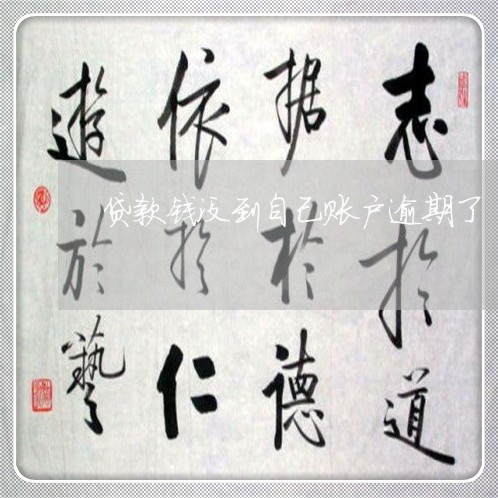 志於道
据於德
依於仁
遊於藝
贷款钱没到自己账户逾期了